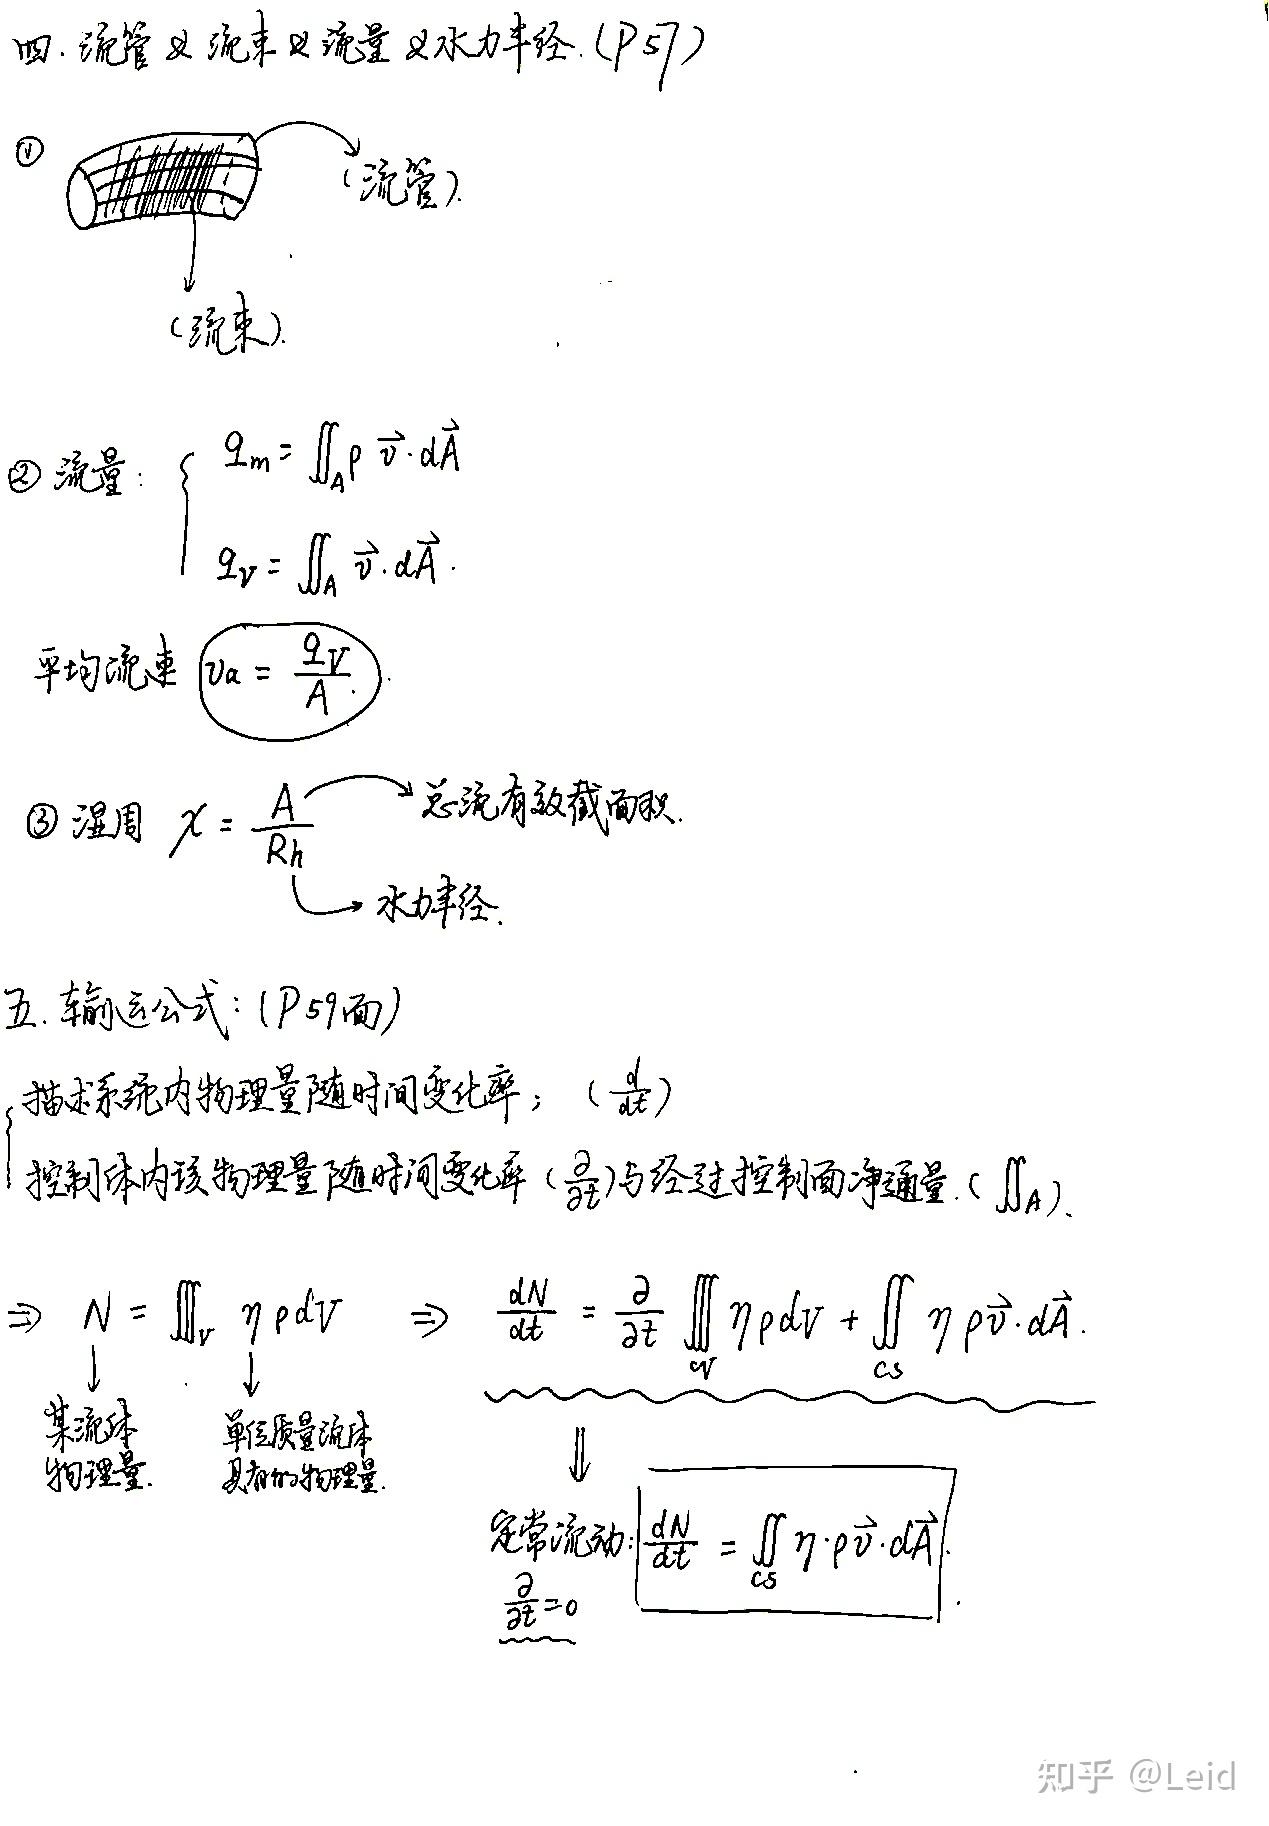 四. 流管 & 流束 & 流量 & 水力半径. (P57)
①
(流管).
(流束).
② 流量: { q_m = ∬_A ρ v⃗·dA⃗
q_V = ∬_A v⃗·dA⃗.
平均流速 v_a = q_V / A.
③ 湿周 χ = A / R_h → 总流有效截面积.
→ 水力半径.
五. 输运公式: (P59面)
{ 描术系统内物理量随时间变化率; (d/dt)
控制体内该物理量随时间变化率 (∂/∂t) 与经过控制面净通量. (∬_A).
⇒ N = ∭_V ηρdV ⇒ dN/dt = ∂/∂t ∭_CV ηρdV + ∬_CS ηρv⃗·dA⃗.
某流体 单位质量流体
物理量. 具有的物理量.
定常流动: dN/dt = ∬_CS η·ρv⃗·dA⃗.
∂/∂t = 0
知乎 @Leid